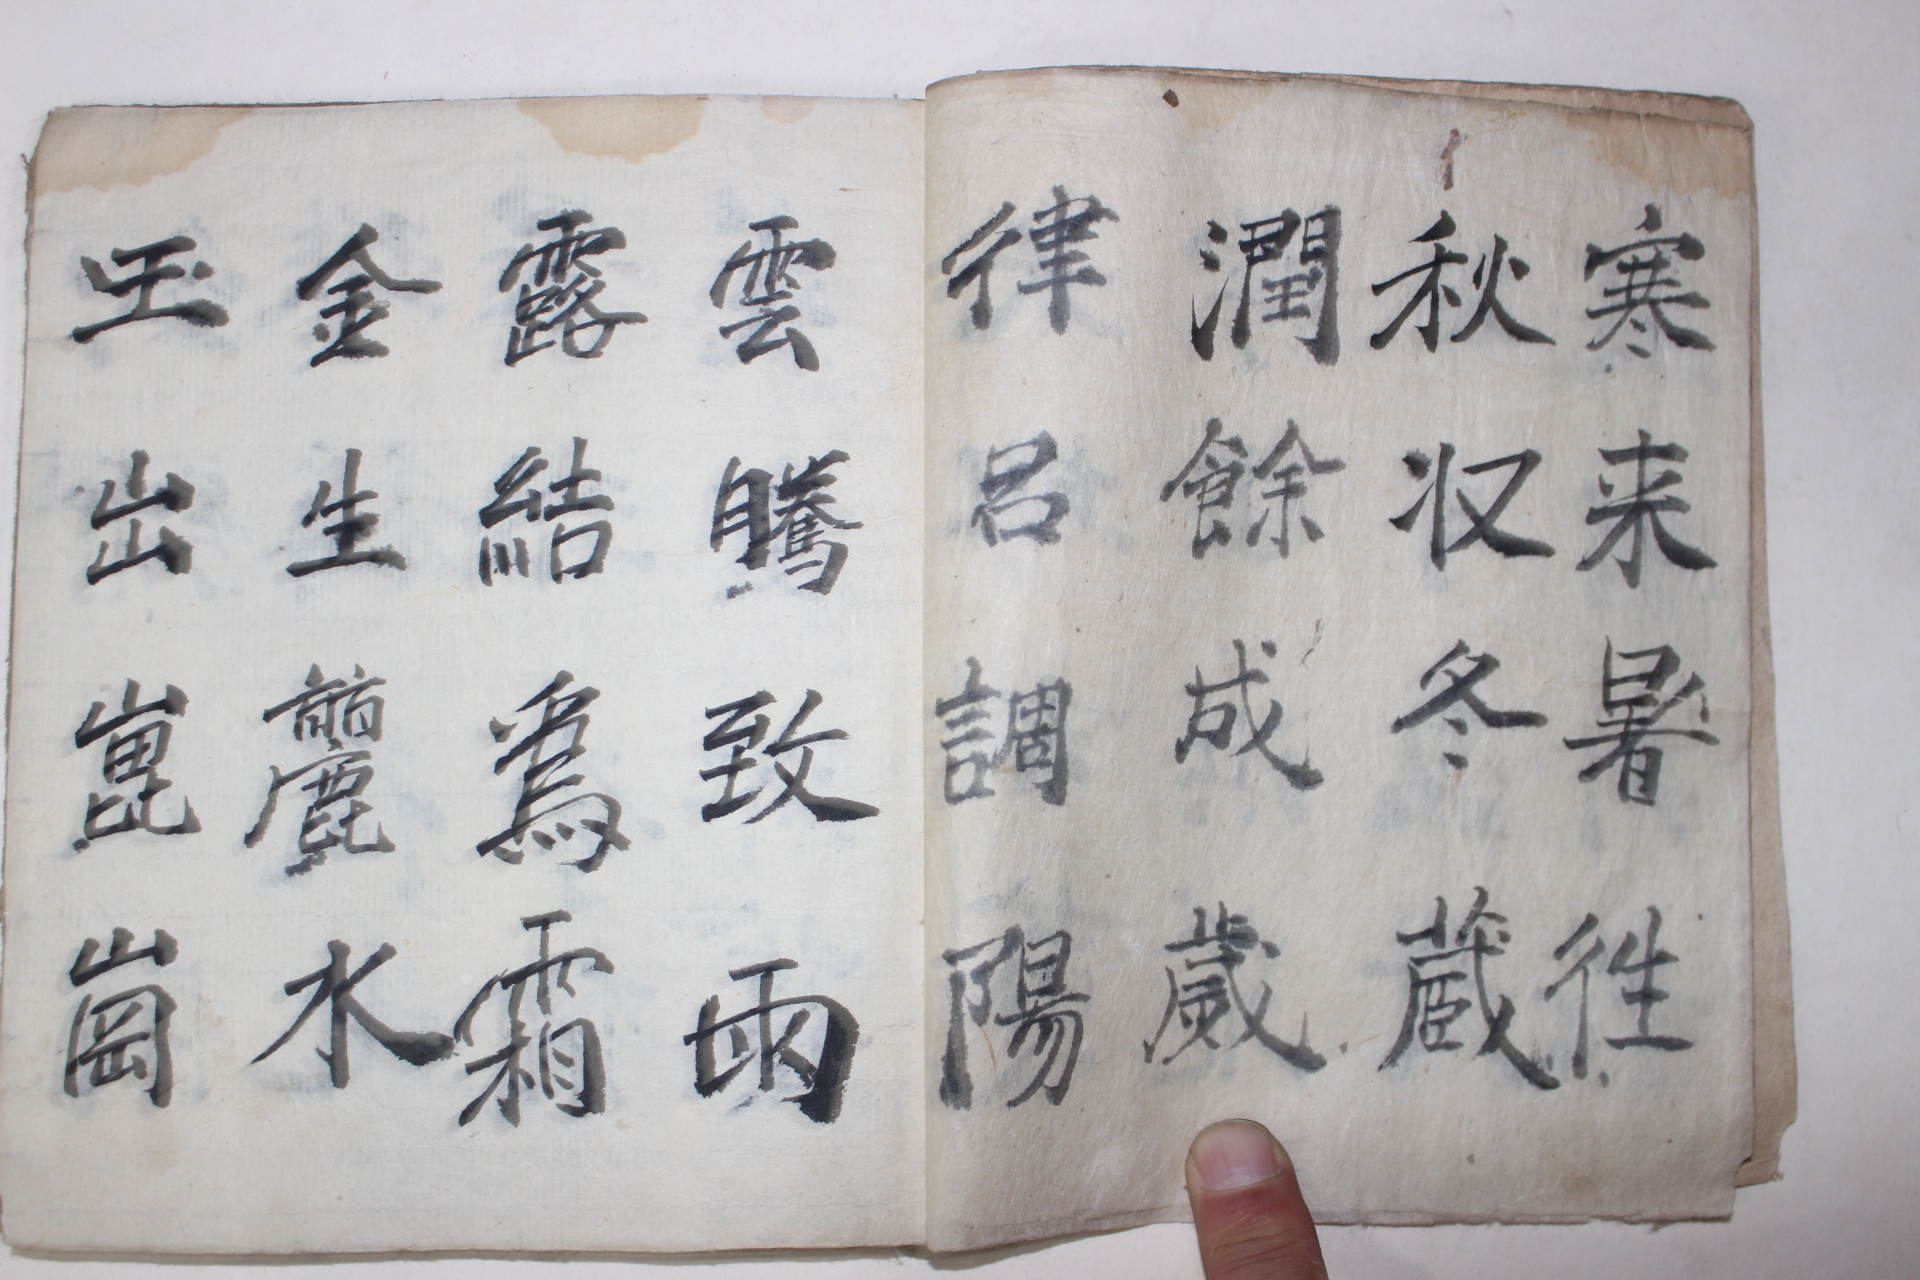 寒来暑徃
秋収冬蔵
潤餘成歲
律呂調陽
雲騰致雨
露結爲霜
金生麗水
玉出崑崗